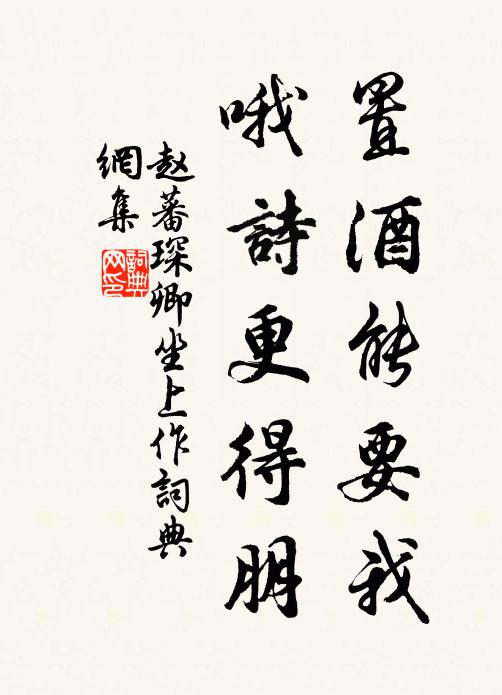 置酒能要我
哦詩更得朋
赵蕃琛卿坐上作詞典
網集
詞典網印